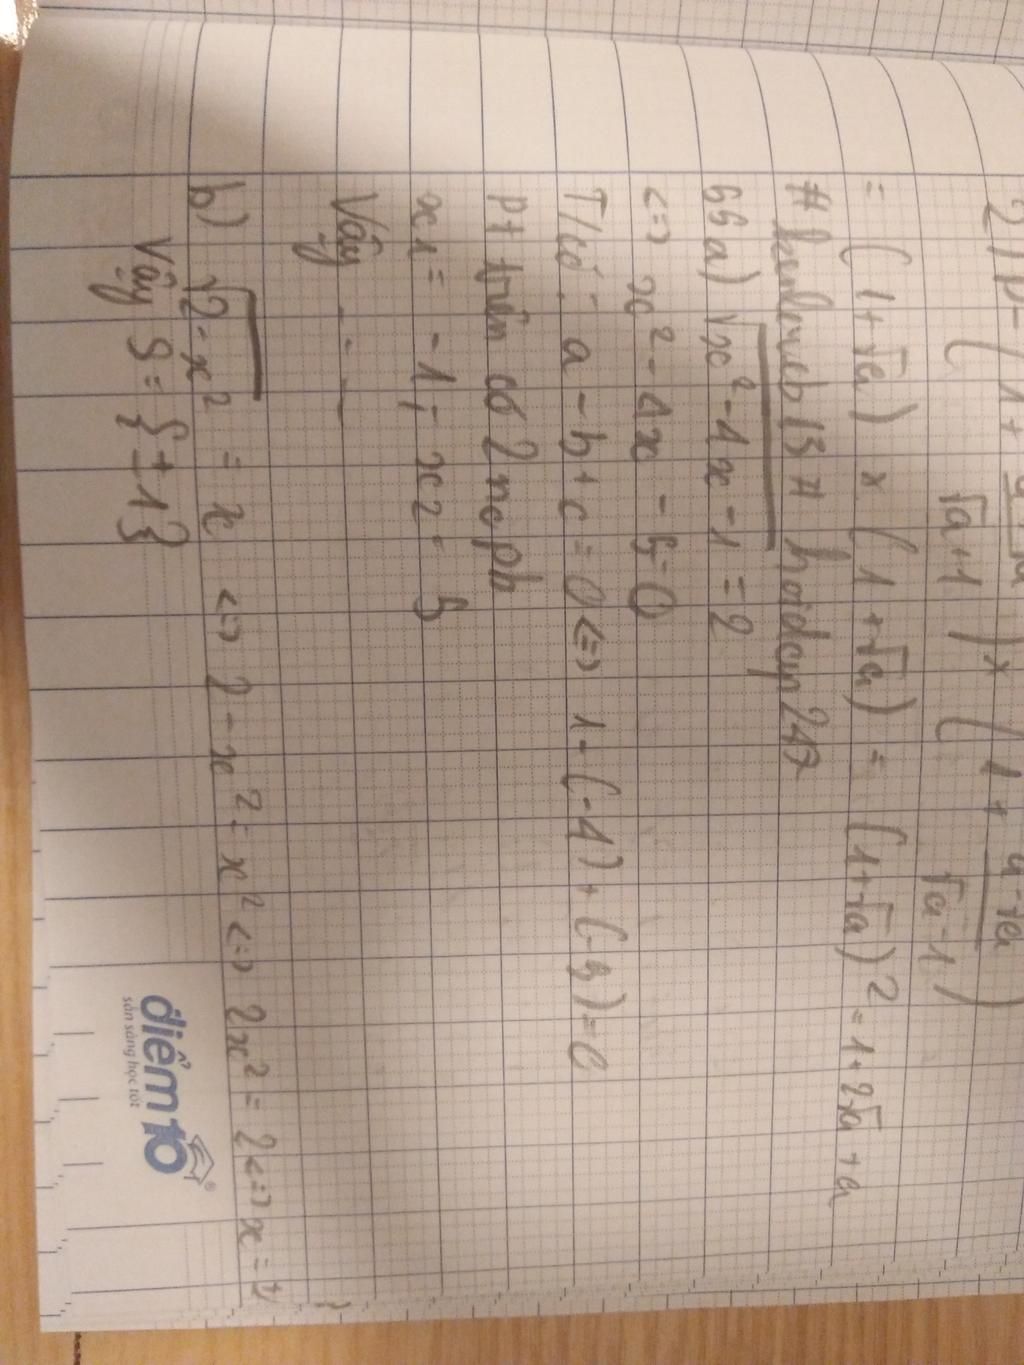 2) P = (1 + a+√a / √a+1) × (1 + a-√a / √a-1)
= (1+√a) × (1+√a) = (1+√a)2 = 1+2√a+a
hoidcyp247
66 a) √x²-4x-1 = 2
<=> x² - 4x - 5 = 0
T/có: a - b + c = 0 <=> 1 - (-4) + (-5) = 0
pt trên có 2 no pb
x1 = -1; x2 = 5
Vậy - - -
b) √2-x² = x <=> 2 - x² = x² <=> 2x² = 2 <=> x = ±1
Vậy S = {±1}
điểm10®
sẵn sàng học tốt